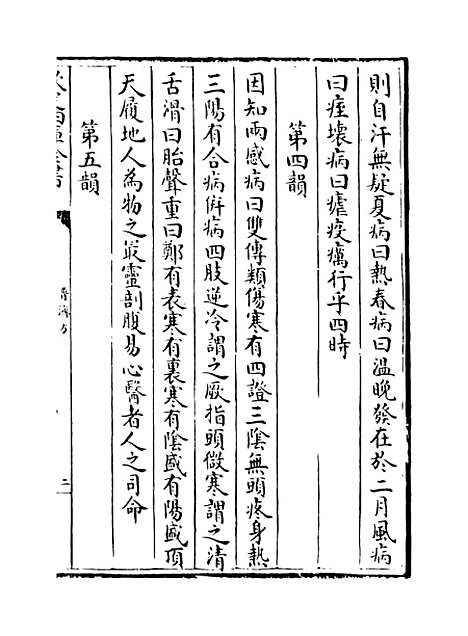 則自汗無疑夏病曰熱春病曰溫晚發在於二月風病
曰痓壞病曰瘧疫癘行乎四時
第四韻
因知兩感病曰雙傳類傷寒有四證三陰無頭疼身熱
三陽有合病併病四肢逆冷謂之厥指頭微寒謂之清
舌滑曰胎聲重曰鄭有表寒有裏寒有陰盛有陽盛頂
天履地人為物之最靈剖腹易心醫者人之司命
第五韻
普濟方
二